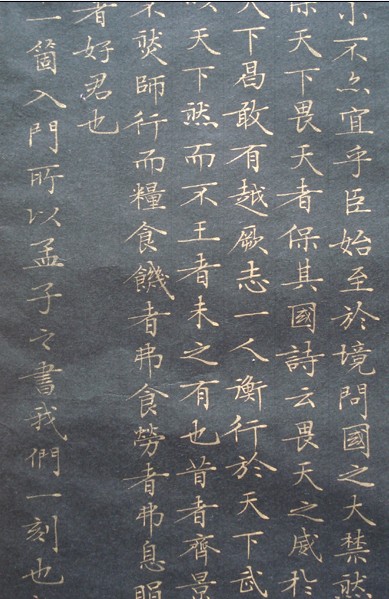 小不亦宜乎臣始至於境問國之大禁然
保天下畏天者保其國詩云畏天之威於
下曷敢有越厥志一人衡行於天下武
以天下然而不王者未之有也昔者齊景
不然師行而糧食饑者弗食勞者弗息睊
者好君也
一箇入門所以孟子之書我們一刻也